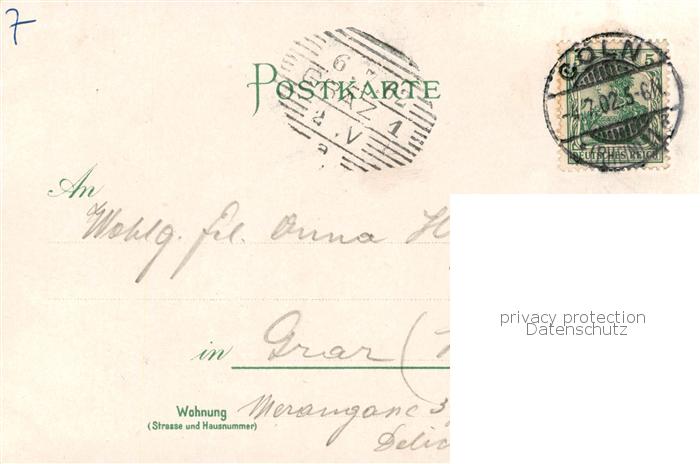 7
POSTKARTE
CÖLN
5
2.7.02.5-6N
DEUTSCHES REICH
An
Wohlg. Frl. Anna H
in Graz (
Wohnung
(Strasse und Hausnummer)
Merangasse 3
privacy protection
Datenschutz